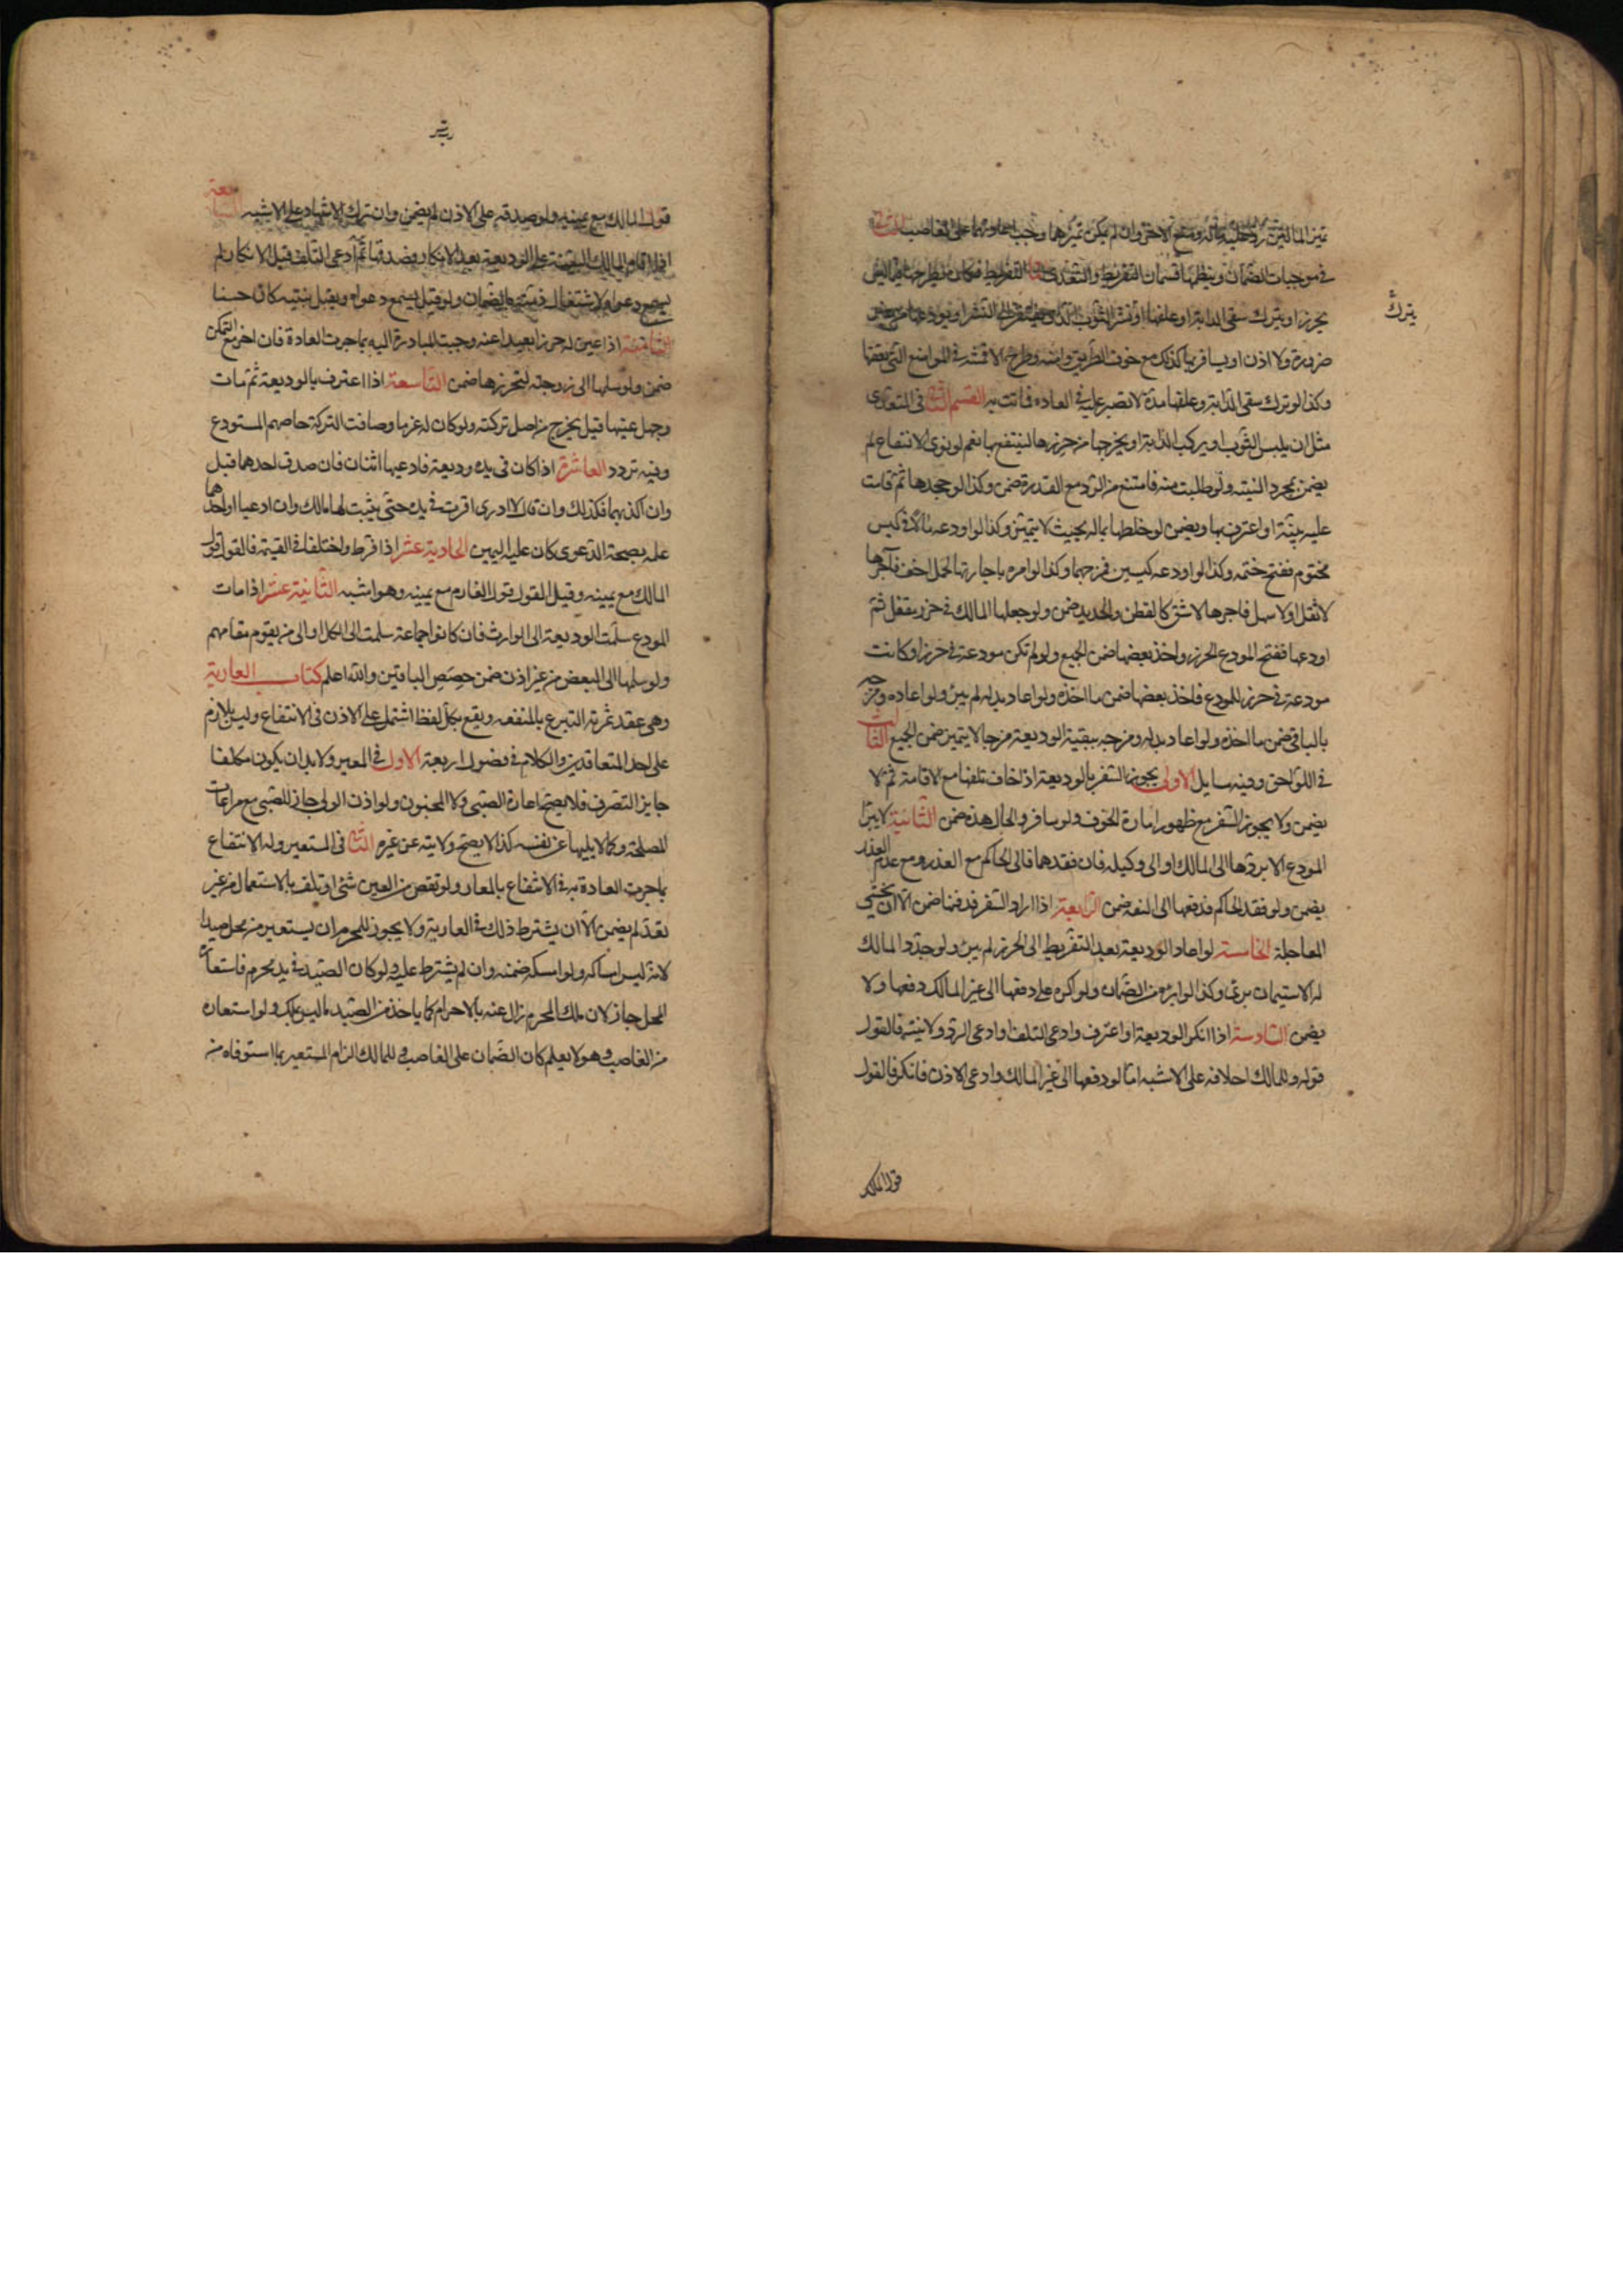 تميز المالين رد عليه ماله ومنع الاخر وان لم يكن تميزهما وجب اعادتهما على الغاصب
في موجبات الضمان وينظمها قسمان التفريط والتعدى التفريط فكان يطرحها فيما ليس
يترك
بحرز او يترك سقى الدابة او علفها او نشر الثوب الذى يفتقر الى النشر او يودعها من غير
ضرورة ولا اذن او يسافر بها كذلك مع خوف الطريق وامنه وطرح الاقمشة في المواضع التى تعفنها
وكذا لو ترك سقى الدابة وعلفها مدة لا تصبر عليه في العادة فماتت به القسم الثانى في التعدى
مثل ان يلبس الثوب او يركب الدابة او يخرجها من حرزها لينتفع بها نعم لو نوى الانتفاع لم
يضمن بمجرد النية ولو طلبت منه فامتنع من الرد مع القدرة ضمن وكذا لو جحدها ثم قامت
عليه بينة او اعترف بها ويضمن لو خلطها بماله بحيث لا يتميز وكذا لو اودعه مالا في كيس
مختوم ففتح ختمه وكذا لو اودعه كيسين فمزجهما وكذا لو امره باجارتها لحمل اخف فآجرها
لاثقل او لاسهل فاجرها لاشق كالقطن والحديد ضمن ولو جعلها المالك في حرز مقفل ثم
اودعها ففتح المودع الحرز واخذ بعضها ضمن الجميع ولو لم تكن مودعة في حرز او كانت
مودعة في حرز للمودع فاخذ بعضها ضمن ما اخذه ولو اعاد بدله لم يبرئ ولو اعاده ومزجه
بالباقى ضمن ما اخذه ولو اعاد بدله ومزجه ببقية الوديعة مزجا لا يتميز ضمن الجميع الثالث
في اللواحق وفيه مسايل الاولى يجوز السفر بالوديعة اذا خاف تلفها مع الاقامة ثم لا
يضمن ولا يجوز السفر مع ظهور امارة الخوف ولو سافر والحال هذه ضمن الثانية لا يبرئ
المودع الا بردها الى المالك او الى وكيله فان فقدهما فالى الحاكم مع العذر ومع عدم العذر
يضمن ولو فقد الحاكم فدفعها الى الثقة ضمن الرابعة اذا اراد السفر فدفنها ضمن الا ان يخشى
المعاجلة الخامسة لو اعاد الوديعة بعد التفريط الى الحرز لم يبرئ ولو جدد المالك
له الاستيمان برئ وكذا لو ابرئه من الضمان ولو اكره على دفعها الى غير المالك دفعها ولا
يضمن السادسة اذا انكر الوديعة او اعترف وادعى التلف او ادعى الرد ولا بينة فالقول
قوله وللمالك احلافه على الاشبه اما لو دفعها الى غير المالك وادعى الاذن فانكر فالقول
قول المالك
قول المالك مع يمينه ولو صدقه على الاذن لم يضمن وان ترك الاشهاد على الاشبه السابعة
اذا اقام المالك البينة على الوديعة بعد الانكار فصدقها ثم ادعى التلف قبل الانكار لم
يسمع دعواه لاشتغال ذمته بالضمان ولو قيل يسمع دعواه ويقبل بينته كان حسنا
الثامنة اذا عين له حرزا بعيدا عنه وجبت المبادرة اليه بما جرت العادة فان اخر مع التمكن
ضمن ولو سلمها الى زوجته لتحرزها ضمن التاسعة اذا اعترف بالوديعة ثم مات
وجهل عينها قيل يخرج من اصل تركته ولو كان له غرما وضاقت التركة حاصهم المستودع
وفيه تردد العاشرة اذا كان في يده وديعة فادعيها اثنان فان صدق احدهما قبل
وان اكذبهما فكذلك وان قال لا ادرى اقرت في يده حتى يثبت لها مالك وان ادعيا او احدهما
علمه بصحة الدعوى كان عليه اليمين الحادية عشر اذا فرط واختلفا في القيمة فالقول قول
المالك مع يمينه وقيل القول قول الغارم مع يمينه وهو اشبه الثانية عشر اذا مات
المودع سلمت الوديعة الى الوارث فان كانوا جماعة سلمت الى الكل او الى من يقوم مقامهم
ولو سلمها الى البعض من غير اذن ضمن حصص الباقين والله اعلم كتاب العارية
وهى عقد ثمرته التبرع بالمنفعة ويقع بكل لفظ اشتمل على الاذن في الانتفاع وليس بلازم
على احد المتعاقدين والكلام في فصول اربعة الاول في المعير ولا بد ان يكون مكلفا
جايز التصرف فلا يصح اعارة الصبى ولا المجنون ولو اذن الولى جاز للصبى مع مراعات
المصلحة وكما لا يليها عن نفسه كذا لا يصح ولايته عن غيره الثانى في المستعير وله الانتفاع
بما جرت العادة به في الانتفاع بالمعار ولو نقص من العين شئ او تلف بالاستعمال من غير
تعد لم يضمن الا ان يشترط ذلك في العارية ولا يجوز للمحرم ان يستعير من محل صيدا
لانه ليس امساكه ولو امسكه ضمنه وان لم يشترط عليه ولو كان الصيد في يد محرم فاستعاره
المحل جاز لان ملك المحرم زال عنه بالاحرام كما ياخذ من الصيد ما ليس بملك ولو استعاره
من الغاصب وهو لا يعلم كان الضمان على الغاصب وللمالك الزام المستعير بما استوفاه من